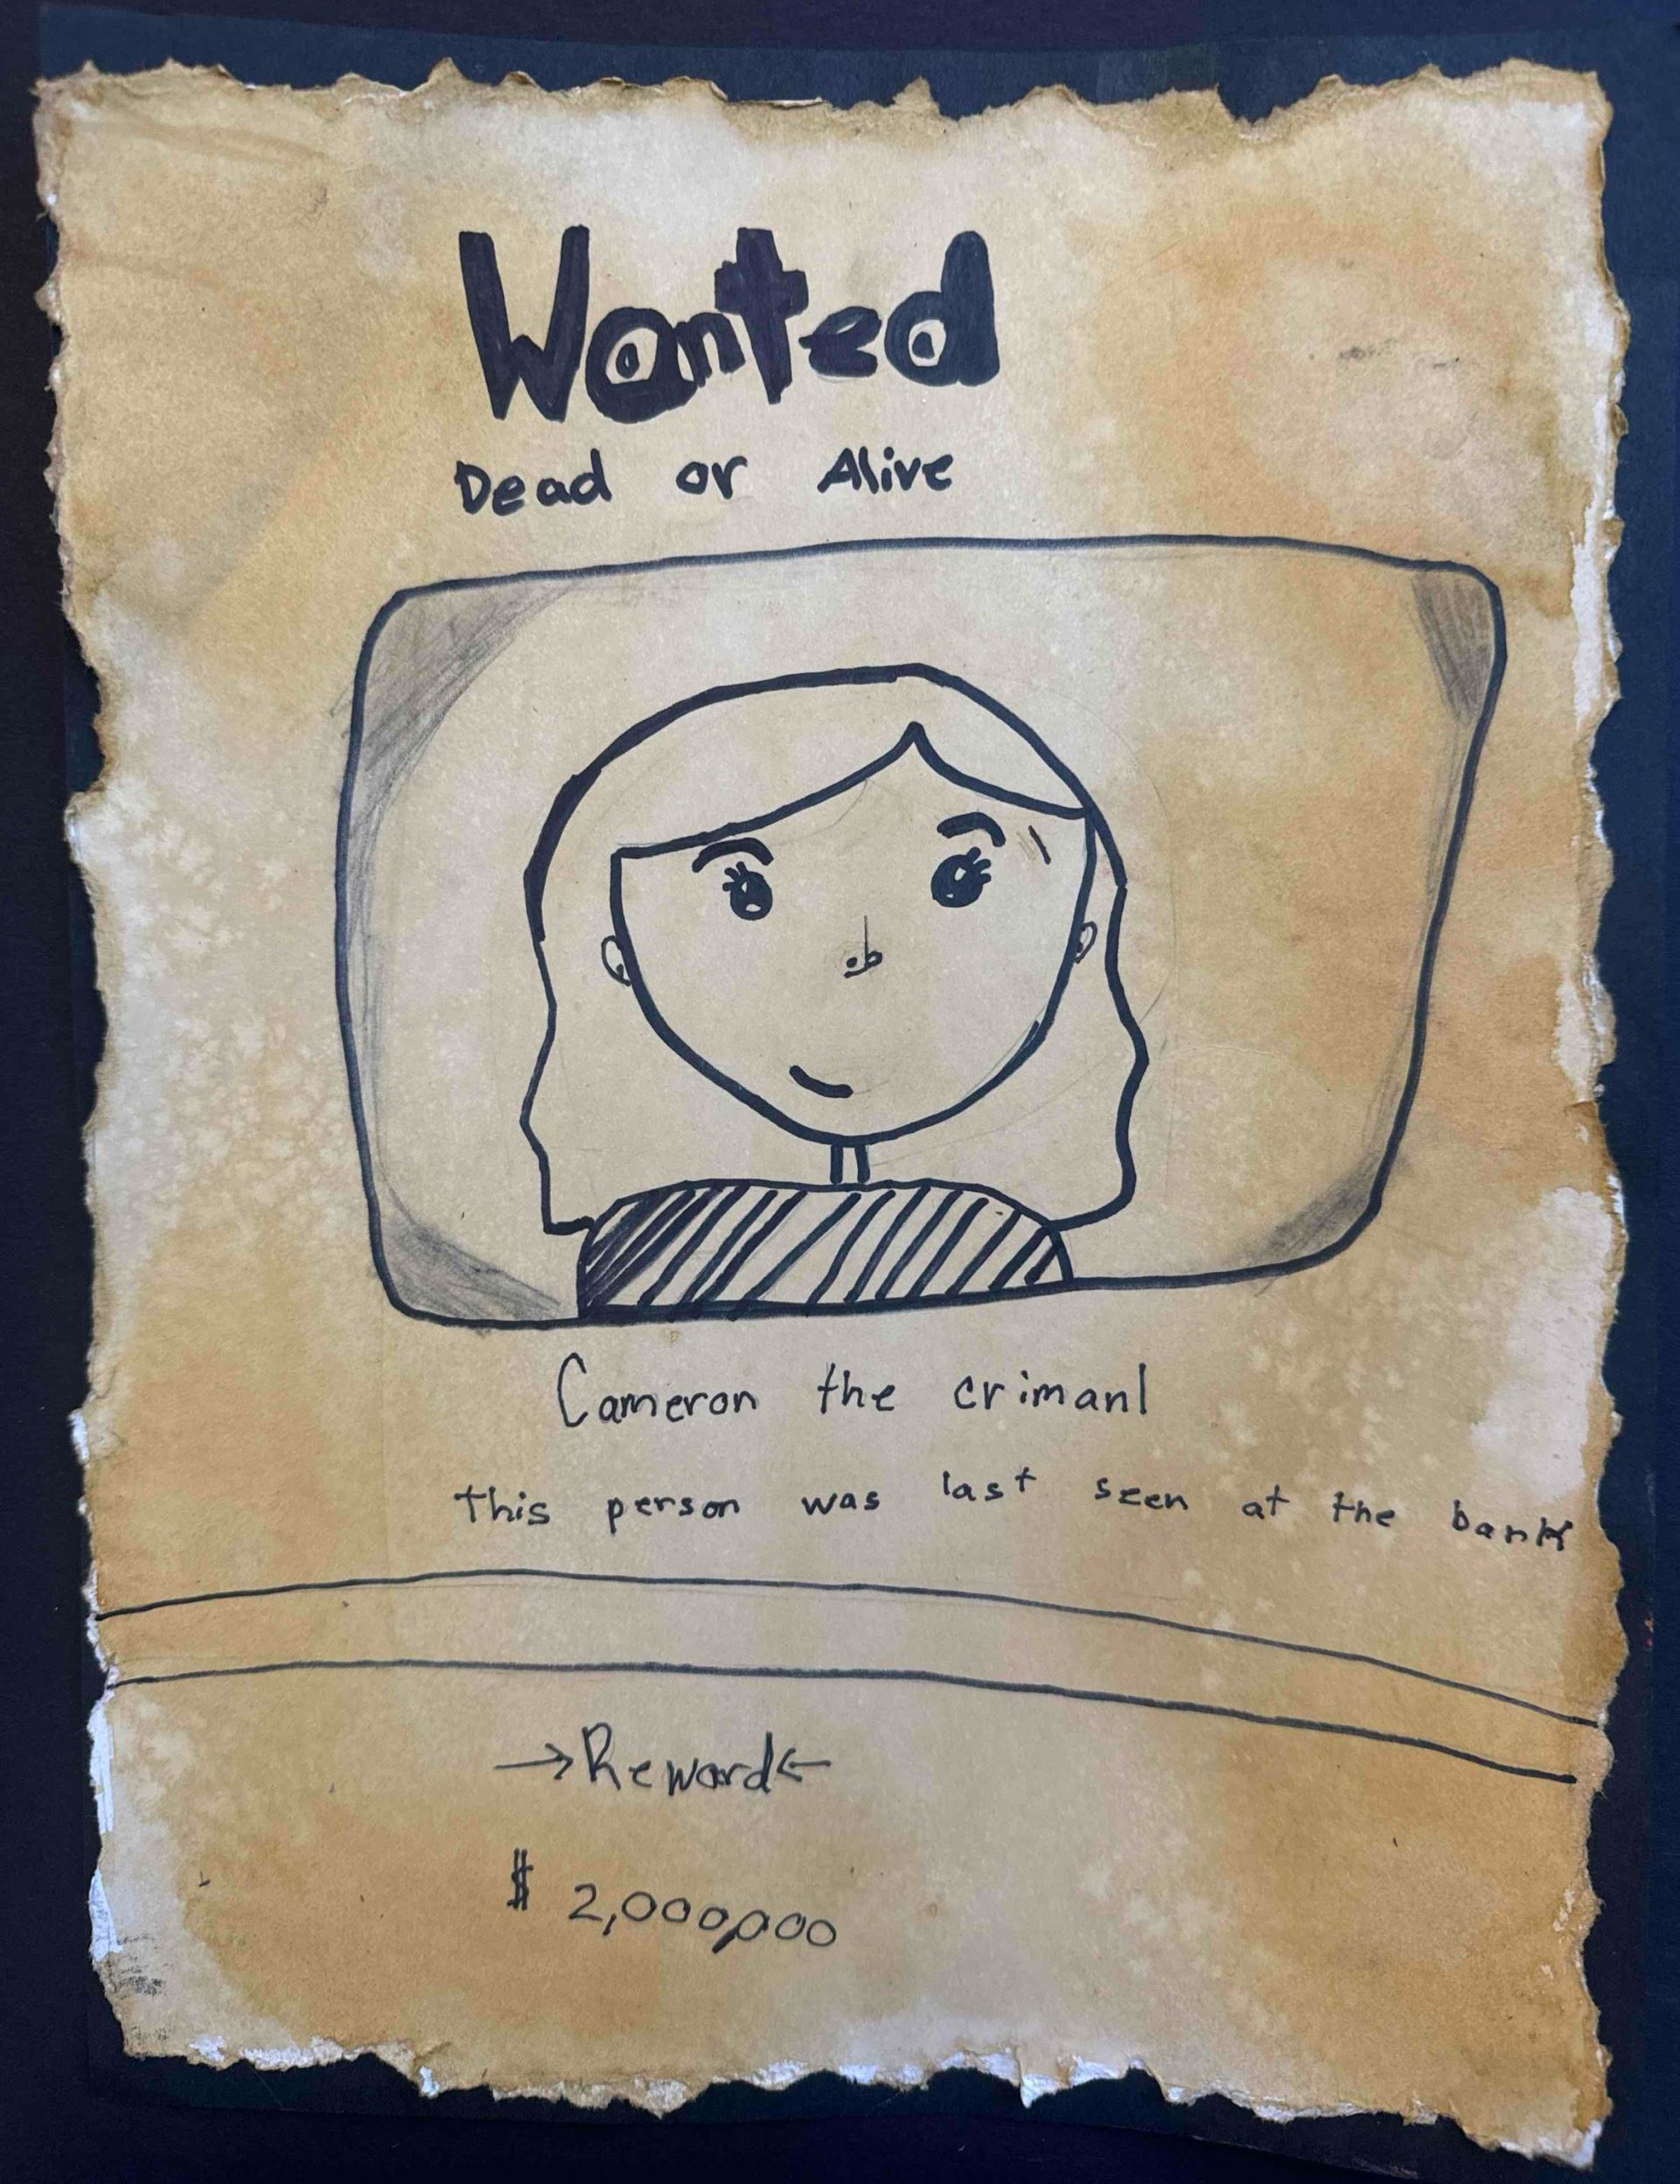 Wanted
Dead or Alive
Cameron the crimanl
This person was last seen at the bank
→Reward←
$ 2,000,000